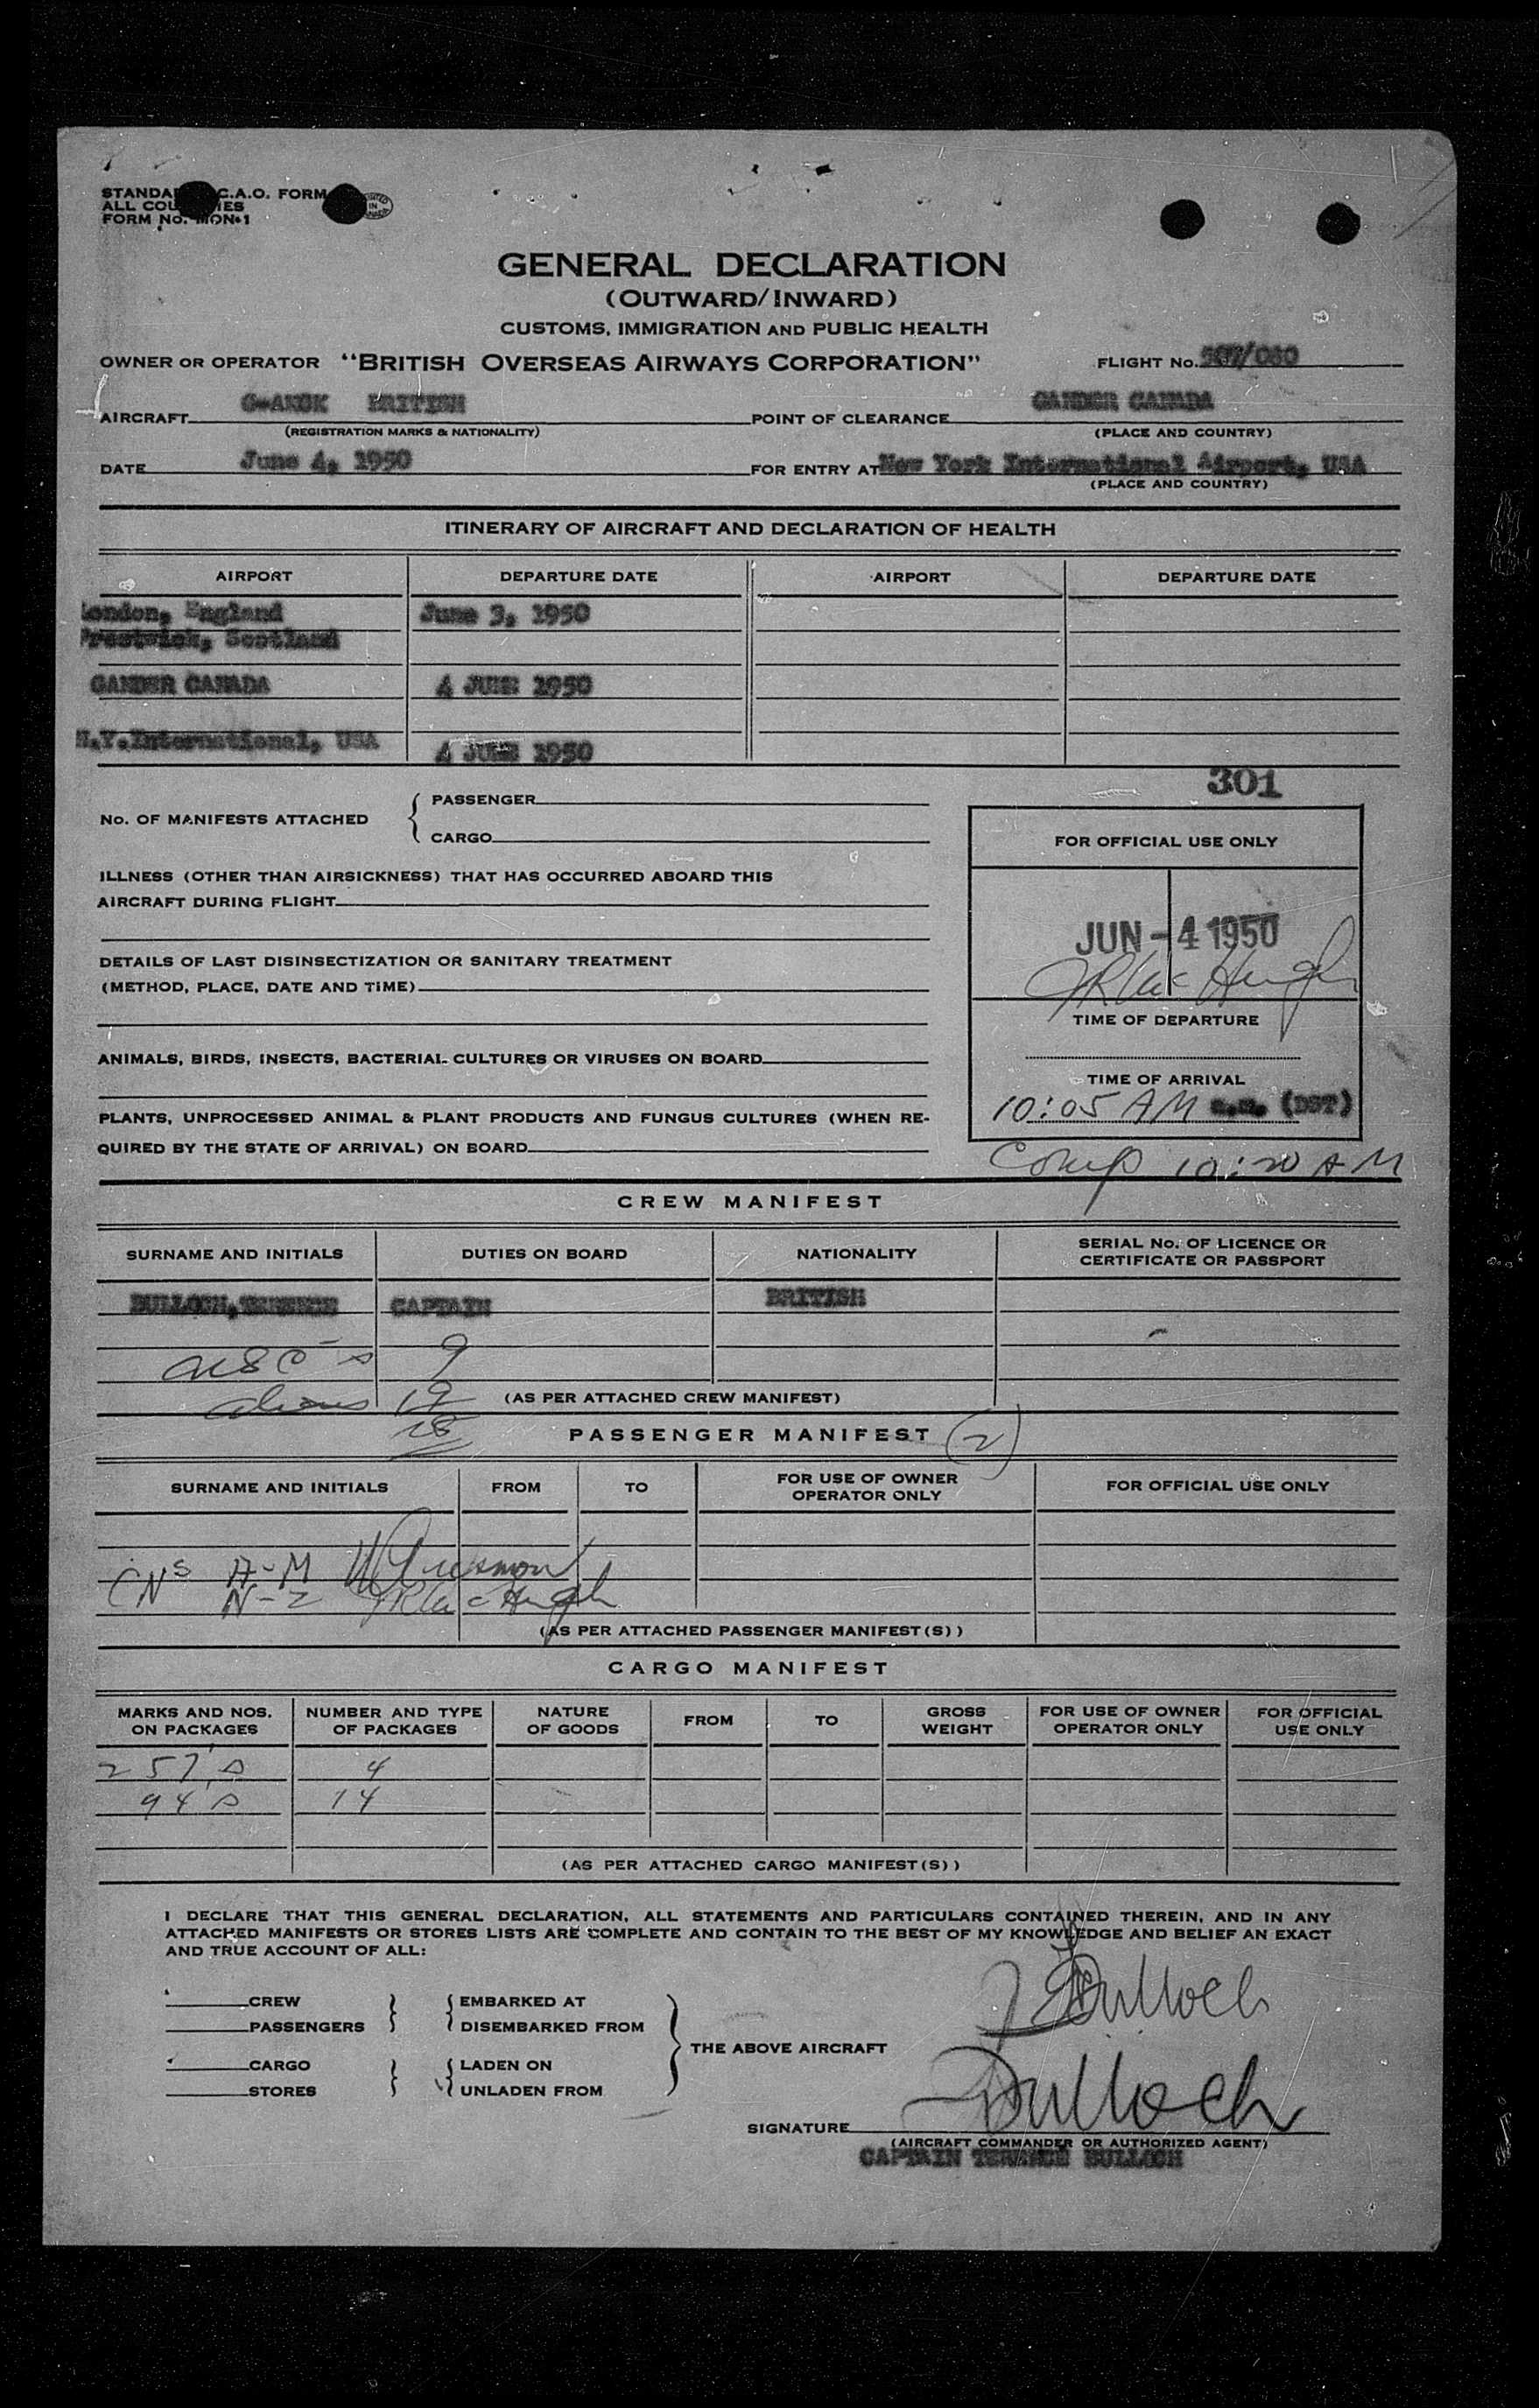 STANDARD I.C.A.O. FORM
ALL COUNTRIES
FORM No. MON-1
GENERAL DECLARATION
(OUTWARD/INWARD)
CUSTOMS, IMMIGRATION AND PUBLIC HEALTH
OWNER OR OPERATOR "BRITISH OVERSEAS AIRWAYS CORPORATION" FLIGHT No.
AIRCRAFT BRITISH POINT OF CLEARANCE GANDER CANADA
(REGISTRATION MARKS & NATIONALITY) (PLACE AND COUNTRY)
DATE June 4, 1950 FOR ENTRY AT New York International Airport, USA
(PLACE AND COUNTRY)
ITINERARY OF AIRCRAFT AND DECLARATION OF HEALTH
AIRPORT DEPARTURE DATE AIRPORT DEPARTURE DATE
London, England June 3, 1950
Prestwick, Scotland
GANDER CANADA 4 JUNE 1950
N.Y.International, USA 4 JUNE 1950
301
No. OF MANIFESTS ATTACHED { PASSENGER
CARGO
FOR OFFICIAL USE ONLY
ILLNESS (OTHER THAN AIRSICKNESS) THAT HAS OCCURRED ABOARD THIS
AIRCRAFT DURING FLIGHT
JUN -4 1950
DETAILS OF LAST DISINSECTIZATION OR SANITARY TREATMENT
(METHOD, PLACE, DATE AND TIME)
TIME OF DEPARTURE
ANIMALS, BIRDS, INSECTS, BACTERIAL CULTURES OR VIRUSES ON BOARD
TIME OF ARRIVAL
10:05 AM a.m. (DST)
PLANTS, UNPROCESSED ANIMAL & PLANT PRODUCTS AND FUNGUS CULTURES (WHEN RE-
QUIRED BY THE STATE OF ARRIVAL) ON BOARD
Comp 10:20 AM
CREW MANIFEST
SURNAME AND INITIALS DUTIES ON BOARD NATIONALITY SERIAL No. OF LICENCE OR
CERTIFICATE OR PASSPORT
BULLOCH, TERENCE CAPTAIN BRITISH
USC's 9
aliens 19 (AS PER ATTACHED CREW MANIFEST)
28
PASSENGER MANIFEST (2)
SURNAME AND INITIALS FROM TO FOR USE OF OWNER
OPERATOR ONLY FOR OFFICIAL USE ONLY
CNs A-M
N-Z
(AS PER ATTACHED PASSENGER MANIFEST(S))
CARGO MANIFEST
MARKS AND NOS.
ON PACKAGES NUMBER AND TYPE
OF PACKAGES NATURE
OF GOODS FROM TO GROSS
WEIGHT FOR USE OF OWNER
OPERATOR ONLY FOR OFFICIAL
USE ONLY
257's 4
94's 14
(AS PER ATTACHED CARGO MANIFEST(S))
I DECLARE THAT THIS GENERAL DECLARATION, ALL STATEMENTS AND PARTICULARS CONTAINED THEREIN, AND IN ANY
ATTACHED MANIFESTS OR STORES LISTS ARE COMPLETE AND CONTAIN TO THE BEST OF MY KNOWLEDGE AND BELIEF AN EXACT
AND TRUE ACCOUNT OF ALL:
Bulloch
CREW } { EMBARKED AT
PASSENGERS DISEMBARKED FROM
} THE ABOVE AIRCRAFT
CARGO } { LADEN ON
STORES UNLADEN FROM
SIGNATURE Bulloch
(AIRCRAFT COMMANDER OR AUTHORIZED AGENT)
CAPTAIN TERENCE BULLOCH